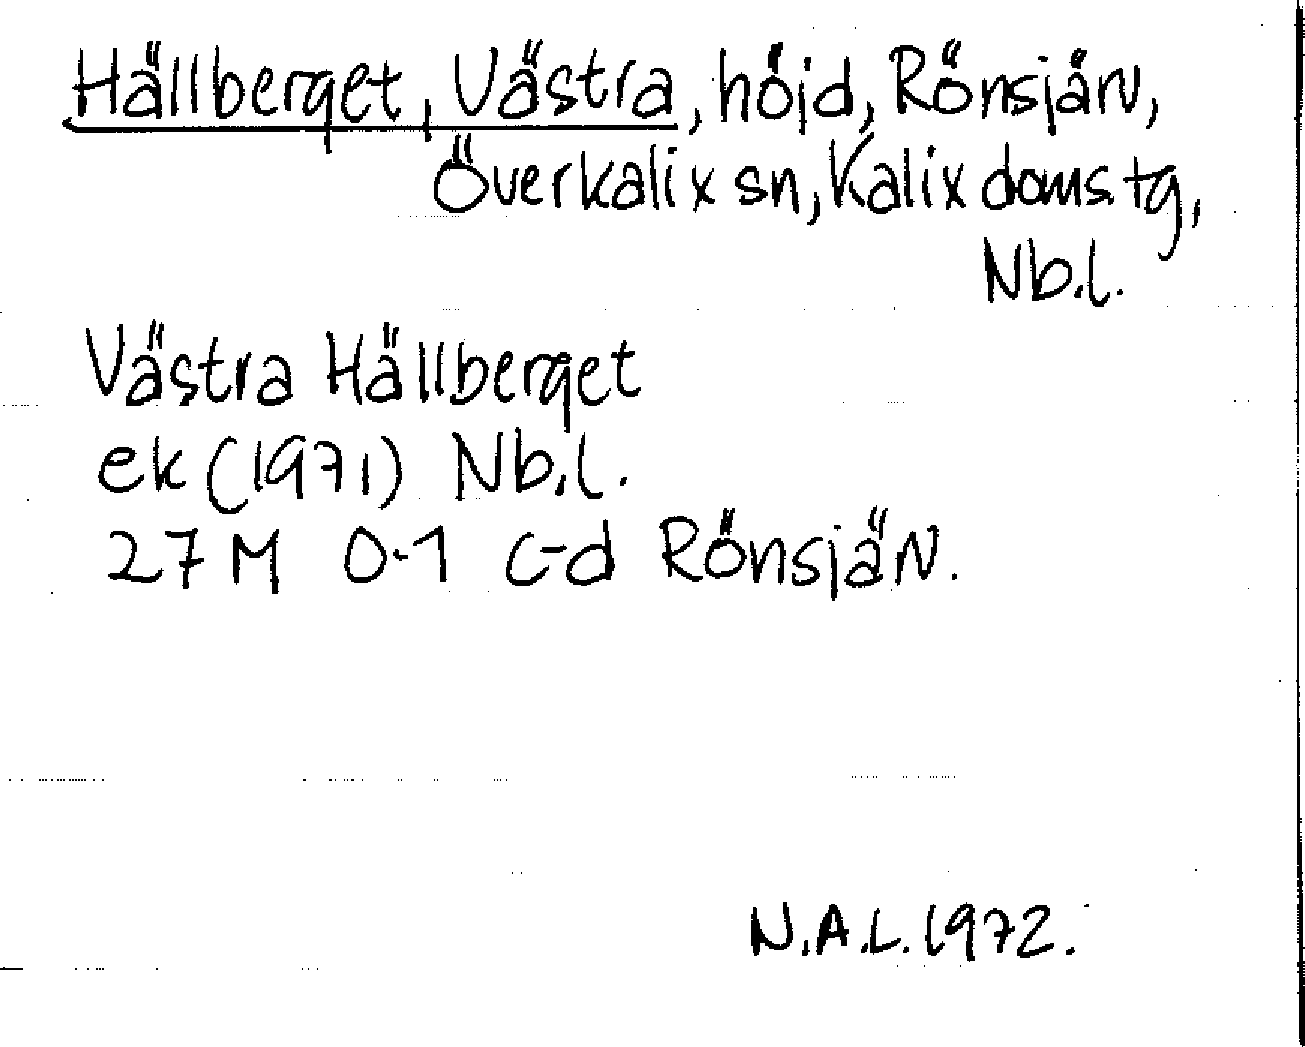 Hällberget, Västra, höjd, Rönsjärv,
Överkalix sn, Kalix domstg,
Nb.l.
Västra Hällberget
ek (1971) Nb.l.
27 M 0-1 c-d Rönsjärv.
N.A.L. 1972.